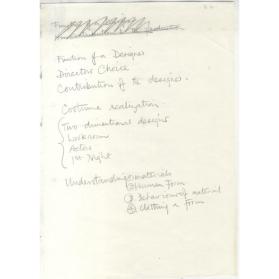 Function of a Designer
Director Choice
Contribution of the designer.
Costume realization
Two dimentional designer
Workroom
Actor
1st Night
Understanding materials
① Human Form
② Behaviour of material
③ Clothing a Form